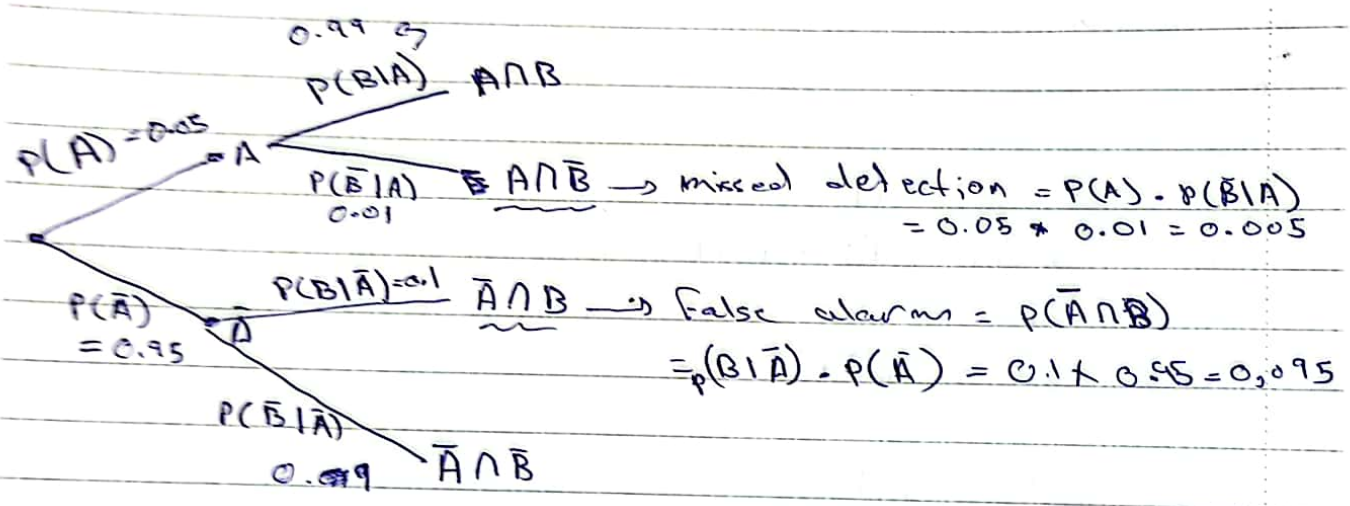 0.99
P(B|A) A∩B
P(A) = 0.05
A
P(B̄|A) A∩B̄ → missed detection = P(A) . P(B̄|A)
0.01
= 0.05 * 0.01 = 0.005
P(B|Ā)=0.1 Ā∩B → False alarm = P(Ā∩B)
P(Ā)
= 0.95
Ā
= P(B|Ā) . P(Ā) = 0.1 × 0.95 = 0,095
P(B̄|Ā)
0.9
Ā∩B̄